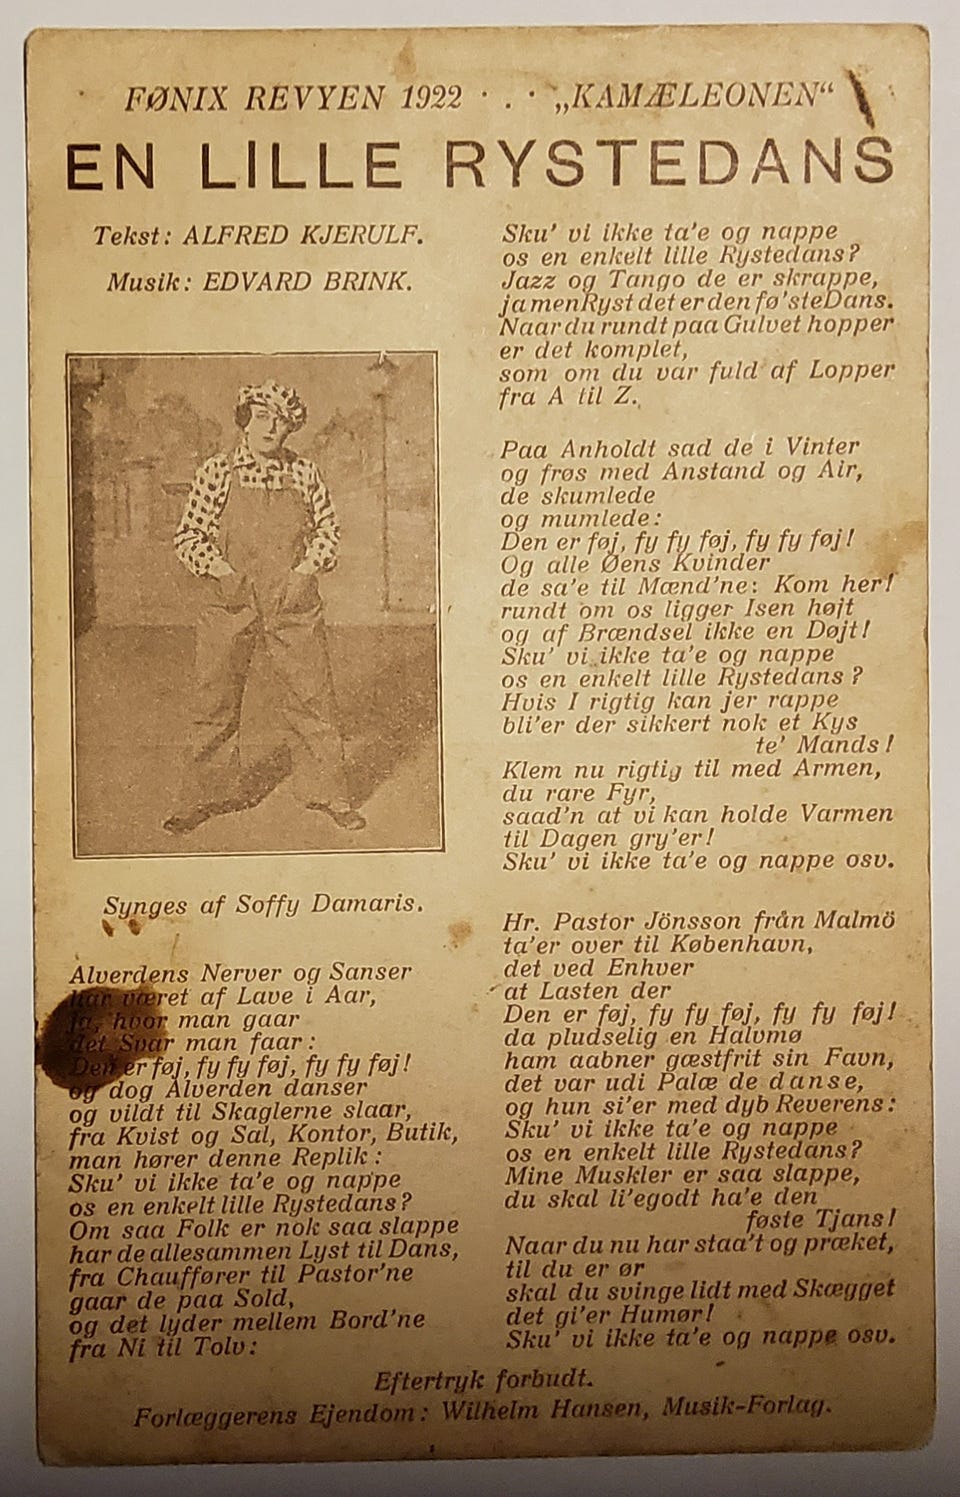 FØNIX REVYEN 1922 · . · „KAMÆLEONEN“
EN LILLE RYSTEDANS
Tekst: ALFRED KJERULF.
Musik: EDVARD BRINK.
Synges af Soffy Damaris.
Alverdens Nerver og Sanser
har været af Lave i Aar,
ja, hvor man gaar
det Svar man faar:
Den er føj, fy fy føj, fy fy føj!
og dog Alverden danser
og vildt til Skaglerne slaar,
fra Kvist og Sal, Kontor, Butik,
man hører denne Replik:
Sku' vi ikke ta'e og nappe
os en enkelt lille Rystedans?
Om saa Folk er nok saa slappe
har de allesammen Lyst til Dans,
fra Chauffører til Pastor'ne
gaar de paa Sold,
og det lyder mellem Bord'ne
fra Ni til Tolv:
Sku' vi ikke ta'e og nappe
os en enkelt lille Rystedans?
Jazz og Tango de er skrappe,
jamen Ryst det er den fø'ste Dans.
Naar du rundt paa Gulvet hopper
er det komplet,
som om du var fuld af Lopper
fra A til Z.
Paa Anholdt sad de i Vinter
og frøs med Anstand og Air,
de skumlede
og mumlede:
Den er føj, fy fy føj, fy fy føj!
Og alle Øens Kvinder
de sa'e til Mænd'ne: Kom her!
rundt om os ligger Isen højt
og af Brændsel ikke en Døjt!
Sku' vi ikke ta'e og nappe
os en enkelt lille Rystedans?
Hvis I rigtig kan jer rappe
bli'er der sikkert nok et Kys
te' Mands!
Klem nu rigtig til med Armen,
du rare Fyr,
saad'n at vi kan holde Varmen
til Dagen gry'er!
Sku' vi ikke ta'e og nappe osv.
Hr. Pastor Jönsson från Malmö
ta'er over til København,
det ved Enhver
at Lasten der
Den er føj, fy fy føj, fy fy føj!
da pludselig en Halvmø
ham aabner gæstfrit sin Favn,
det var udi Palæ de danse,
og hun si'er med dyb Reverens:
Sku' vi ikke ta'e og nappe
os en enkelt lille Rystedans?
Mine Muskler er saa slappe,
du skal li'egodt ha'e den
føste Tjans!
Naar du nu har staa't og præket,
til du er ør
skal du svinge lidt med Skægget
det gi'er Humør!
Sku' vi ikke ta'e og nappe osv.
Eftertryk forbudt.
Forlæggerens Ejendom: Wilhelm Hansen, Musik-Forlag.